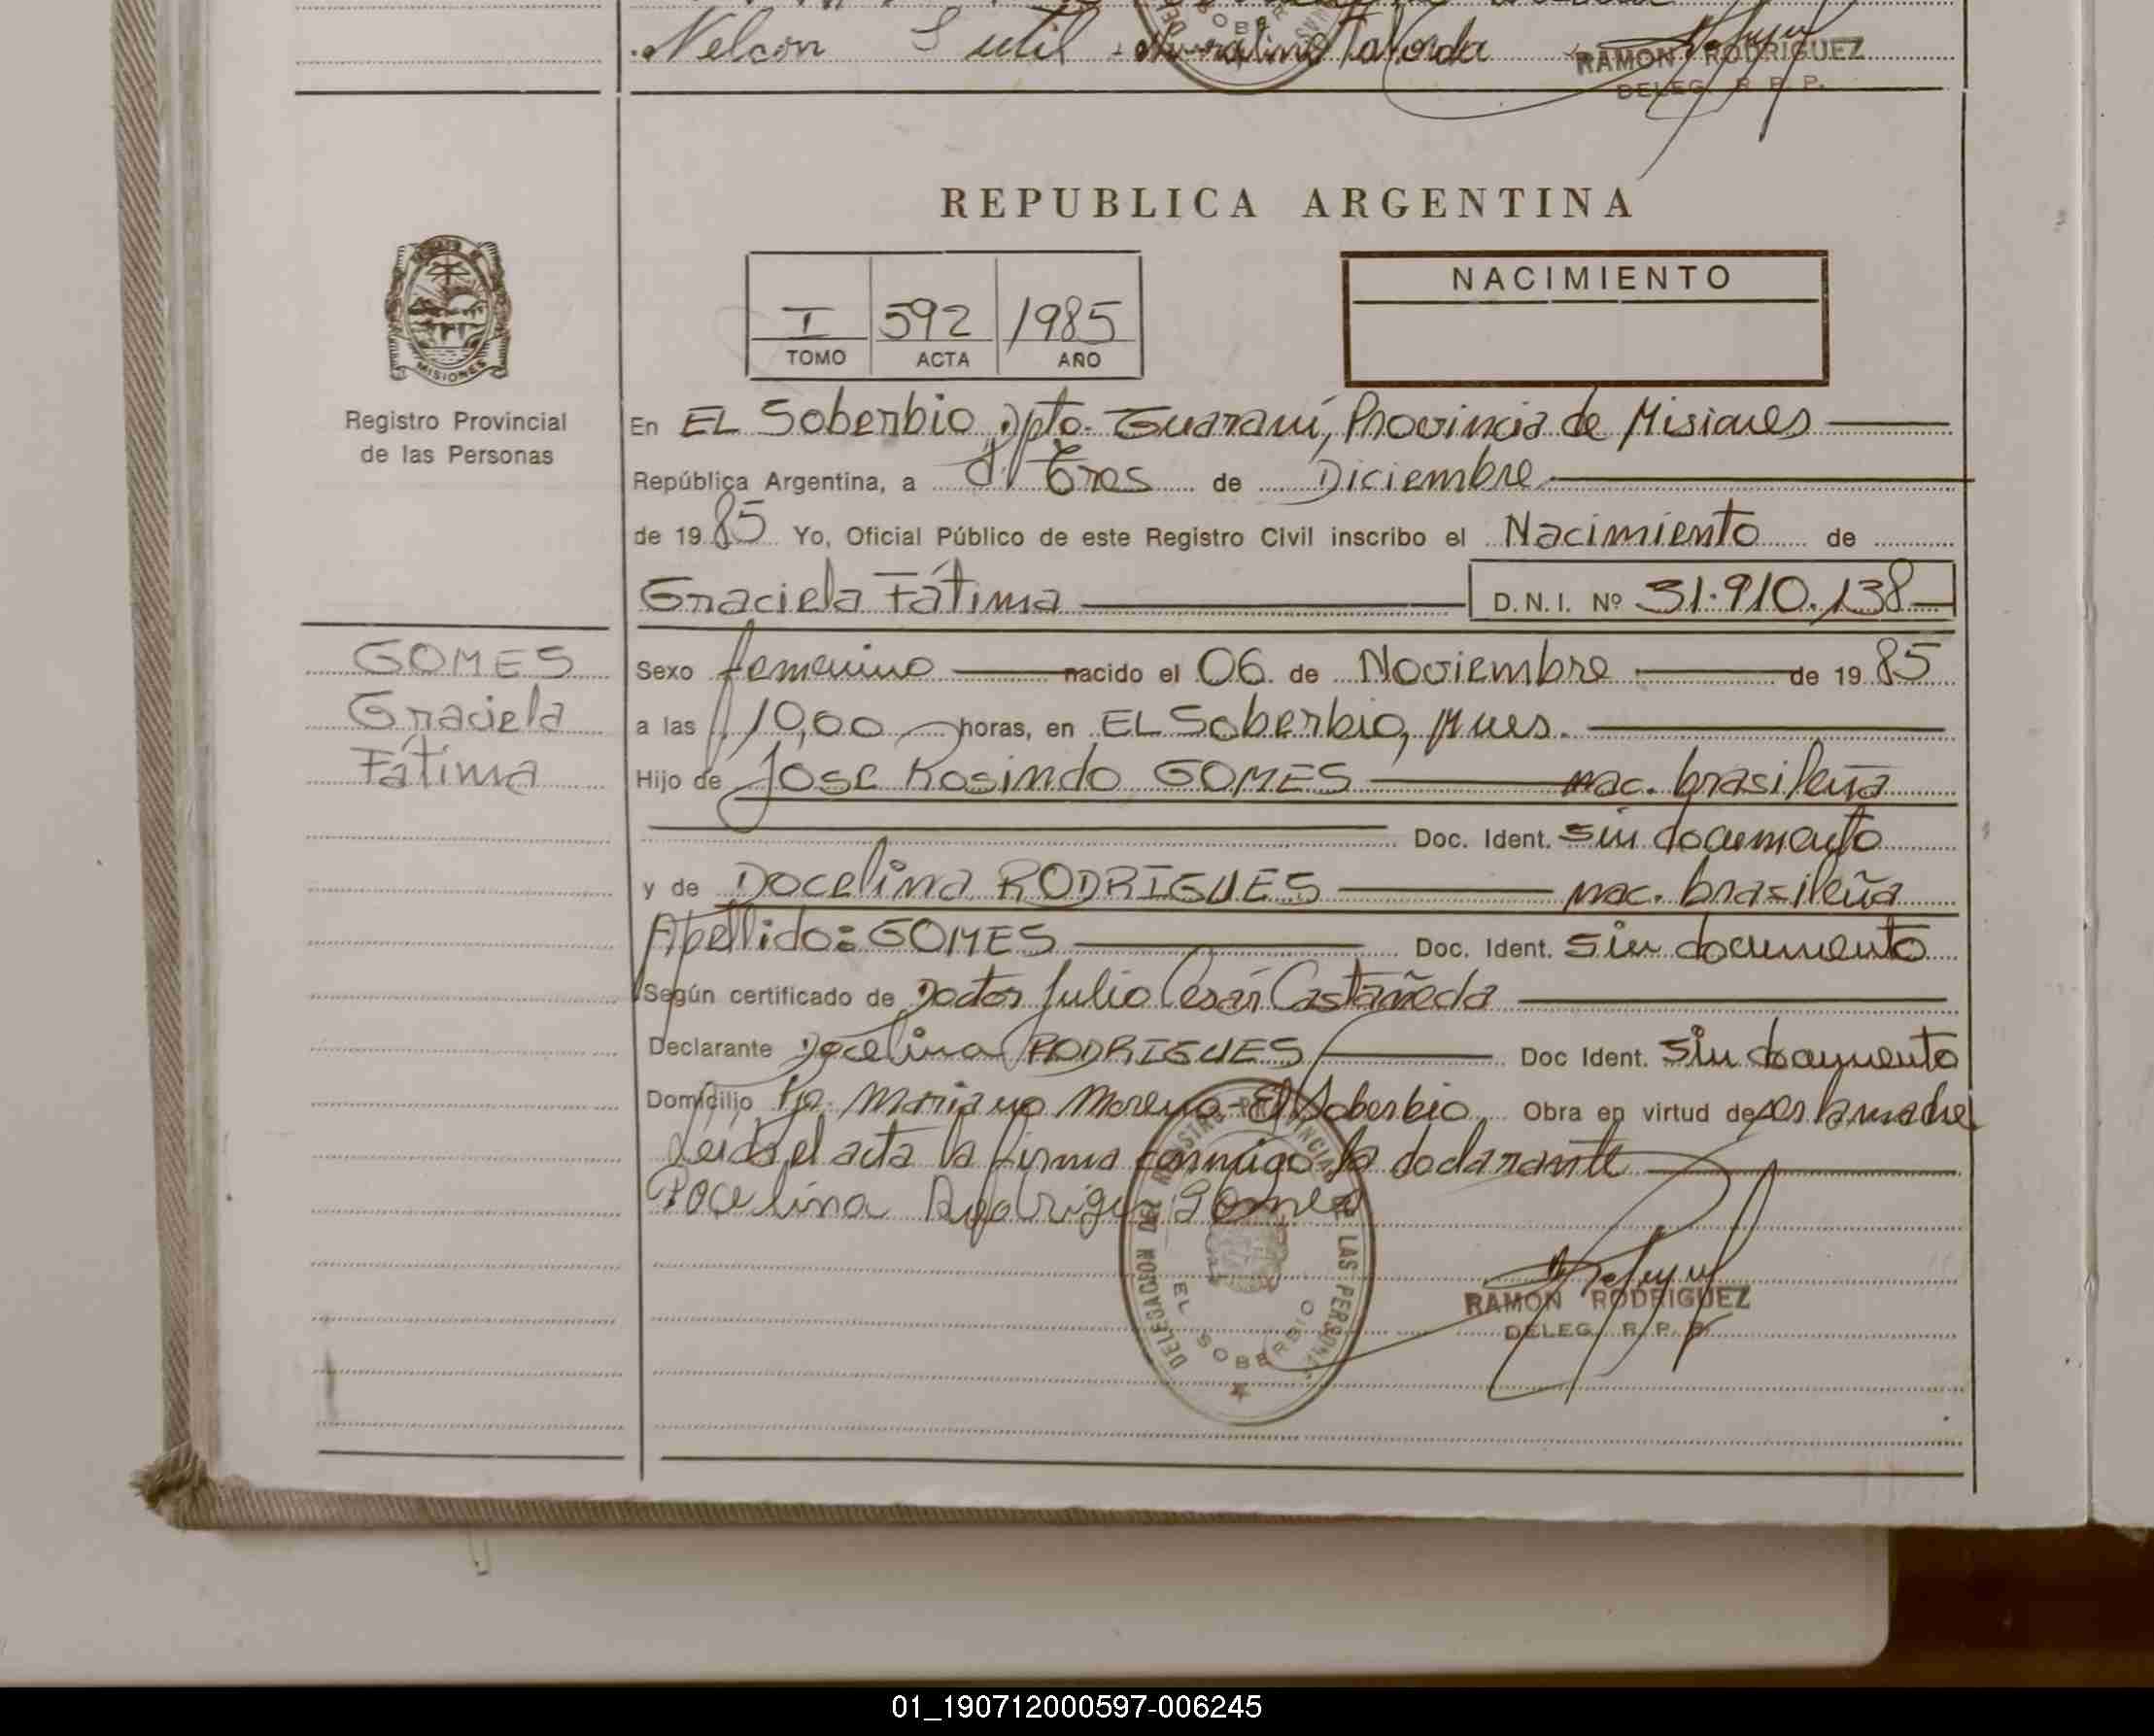 Nelson Sutil
RAMON RODRIGUEZ
DELEG. R. P. P.
REPUBLICA ARGENTINA
I 592 1985
TOMO ACTA AÑO
NACIMIENTO
MISIONES
Registro Provincial
de las Personas
En EL Soberbio, Dpto. Guaraní, Provincia de Misiones
República Argentina, a Tres de Diciembre
de 1985 Yo, Oficial Público de este Registro Civil inscribo el Nacimiento de
Graciela Fátima D.N.I. Nº 31.910.138
GOMES
Graciela
Fátima
Sexo femenino nacido el 06 de Noviembre de 1985
a las 10,00 horas, en EL Soberbio, Mnes.
Hijo de José Rosindo GOMES nac. brasileña
Doc. Ident. sin documento
y de Docelina RODRIGUES nac. brasileña
Apellido: GOMES Doc. Ident. sin documento
Según certificado de Doctor Julio Cesar Castañeda
Declarante Docelina RODRIGUES Doc Ident. sin documento
Domicilio Pje. Mariano Moreno - El Soberbio Obra en virtud de ser la madre
Leída el acta la firma conmigo la declarante
Docelina Rodrigues Gomes
DELEGACION DEL REGISTRO PROVINCIAL DE LAS PERSONAS
EL SOBERBIO
RAMON RODRIGUEZ
DELEG. R. P. P.
01_190712000597-006245